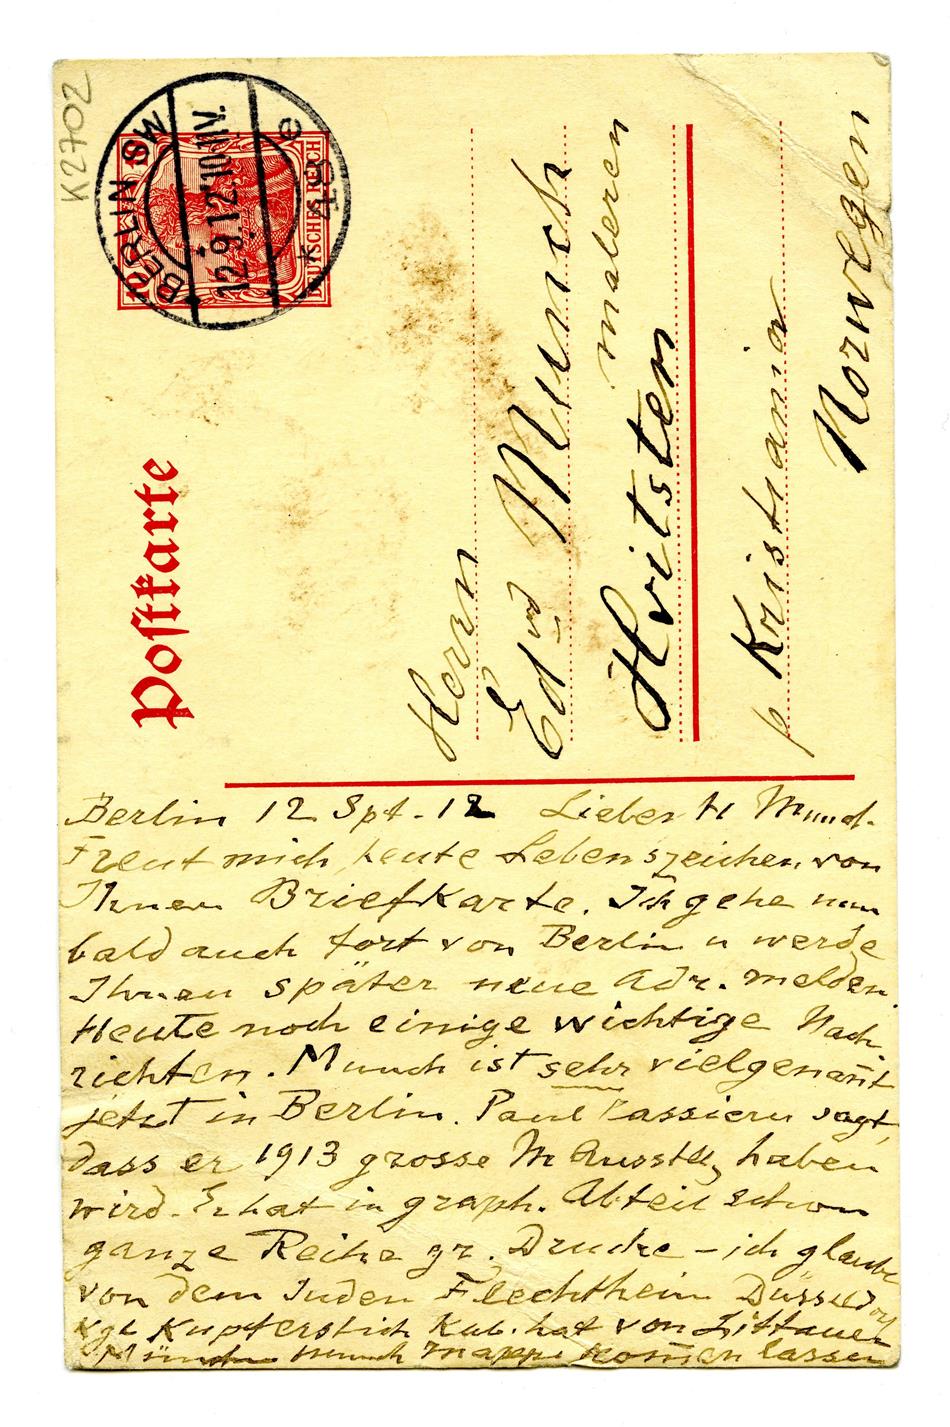 K2702
BERLIN SW
12.9.12.10-11V.
* 48 e
DEUTSCHES REICH
10
Postkarte
Herrn
Edvrd Munch
maleren
Hvitsten
p Kristiania
Norwegen
Berlin 12 Spt. 12 Lieber H Munch.
Freut mich, heute Lebenszeichen von
Ihnen Briefkarte. Ich gehe nun
bald auch fort von Berlin u werde
Ihnen später neue Adr. melden.
Heute noch einige wichtige Nach-
richten. Munch ist sehr vielgenan̄t
jetzt in Berlin. Paul Cassierer sagt,
dass er 1913 grosse M Ausstllg haben
wird. Er hat in graph. Abteil schon
ganze Reihe gr. Drucke – ich glaube
von dem Juden Flechtheim Düsseldorf
Kgl Kupferstich Kab. hat von Littauer
München Munch mappe kom̄en lassen